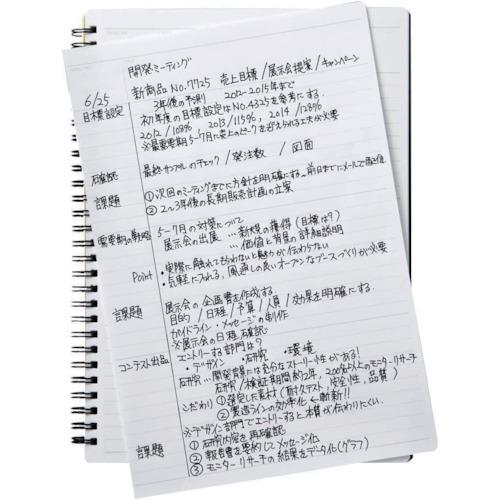 開発ミーティング
6/25 新商品 No.7725 売上目標 / 展示会提案 / キャンペーン
目標設定 3年後の予測 2012-2015年まで
初年度の目標設定はNo.4325を参考にする。
2012/108% 2013/115% 2014/128%
※最重要期5〜7月に売上のピークを迎えられる工夫が必要
確認 最終サンプルのチェック / 発注数 / 図面
課題 ①次回のミーティングまでに方針を明確にする。前日までにメールで
②2〜3年後の長期販売計画の立案
需要期の戦略 5〜7月の対策について
展示会の出展 …新規の獲得(目標は?)
…価値と背景の詳細説明
Point ・実際に触れてもらわないと魅力が伝わらない
・気軽に入れる、風通しの良いオープンなブースづくりが必要
課題 展示会の企画書を作成する。
目的 / 日程 / 予算 / 人員 / 効果を明確にする。
ガイドライン・メッセージの制作
※展示会の日程確認
コンテスト出品 エントリーする部門は?
・デザイン ・研究 ・環境
研究…開発背景には充分なストーリー性がある!
研究 / 検証期間約2年、200名以上のモニターリサーチ
こだわり ①選定した素材(耐久テスト、安全性、品質)
②製造ラインの効率化 ← 斬新!!
※デザイン部門でエントリーすると本質が伝わりにくい。
課題 ①研究内容を再確認
②報告書を要約してメッセージ化
③モニターリサーチの結果をデータ化(グラフ)